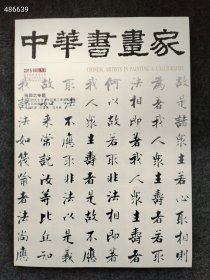 486639
中華書畫家
CHINESE ARTISTS IN PAINTING & CALLIGRAPHY
故是諸眾生若心取相則
為著我人眾生壽者若取
法相即著我人眾生壽者
何以故若取非法相即著
我人眾生壽者是故不應
取法不應取非法以是義
故如來常說汝等比丘知
我說法如筏喻者法尚應